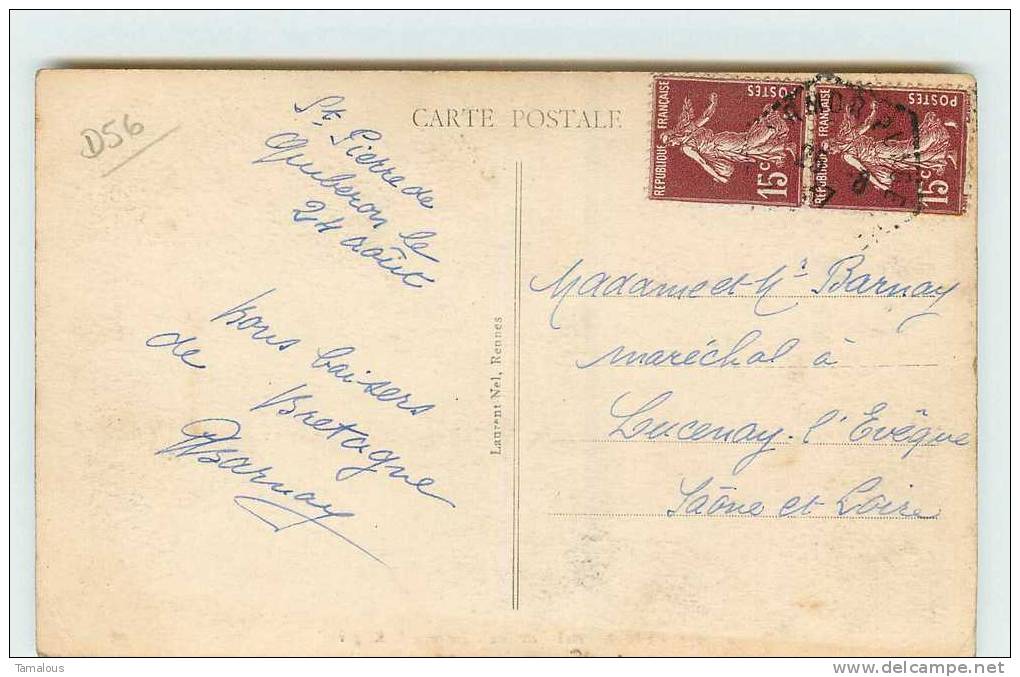 D56
CARTE POSTALE
St Pierre de
Quiberon le
24 août
bons baisers
de Bretagne
Barnay
Laurent Nel, Rennes
REPUBLIQUE FRANÇAISE
POSTES
15c
REPUBLIQUE FRANÇAISE
POSTES
15c
Madame et Mr Barnay
maréchal à
Lucenay-l'Evêque
Saône et Loire
Tamalous
http://www.delcampe.net